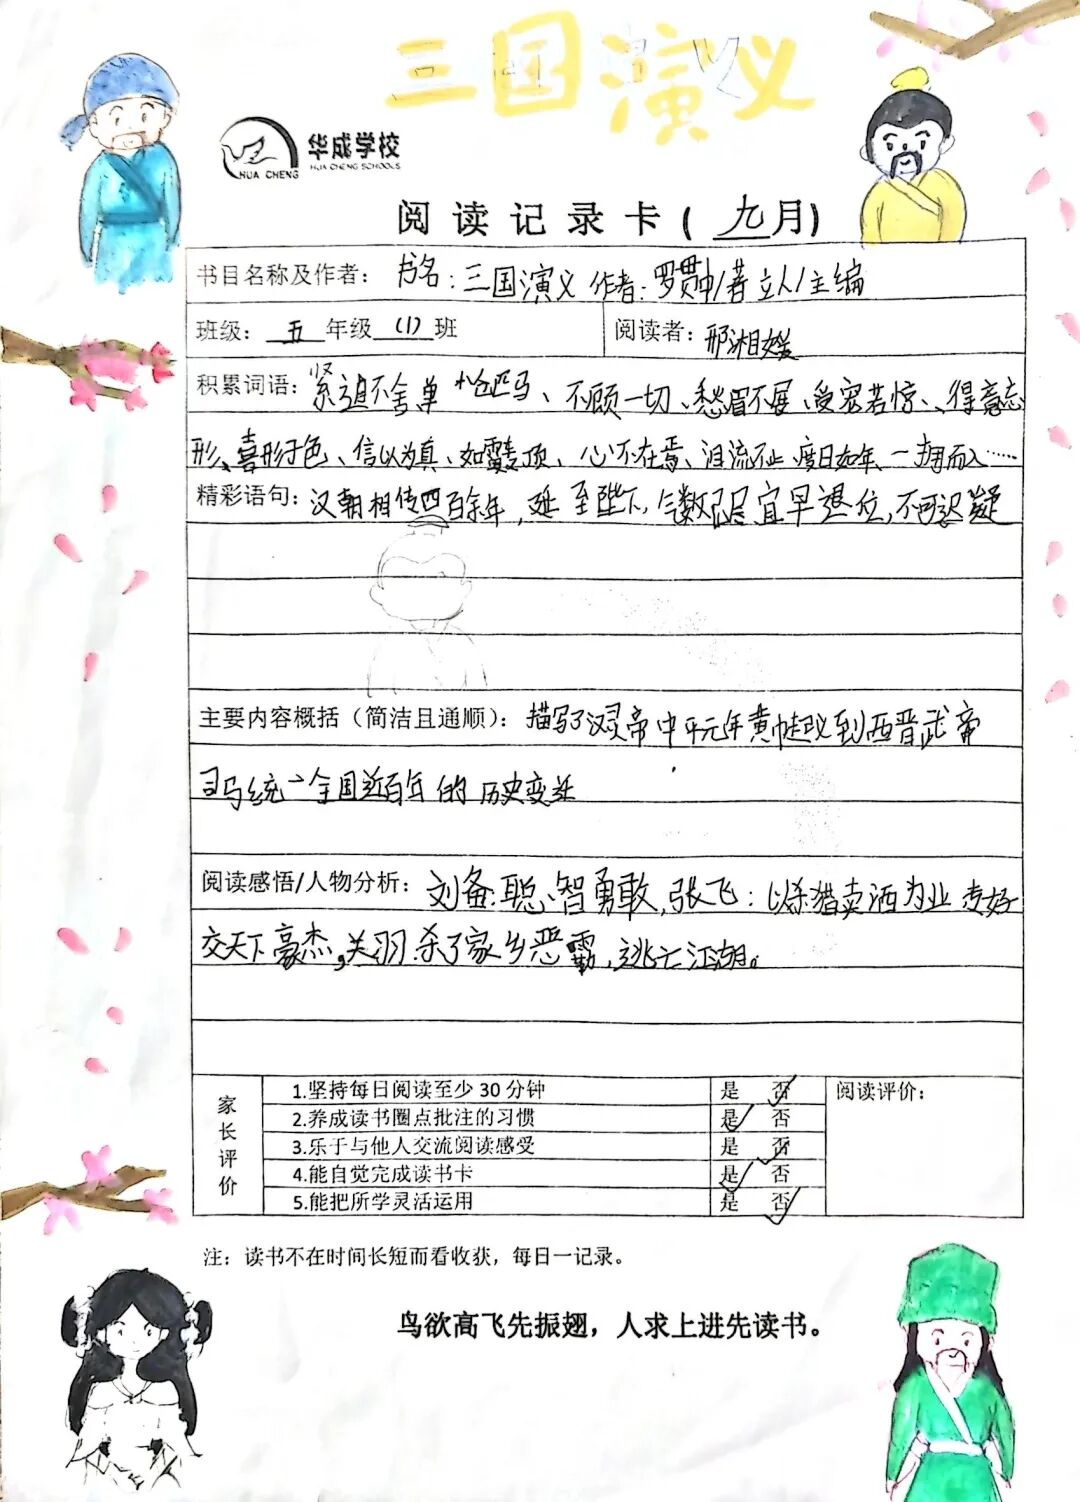 三国演义
华成学校
HUA CHENG
HUA CHENG SCHOOLS
阅读记录卡(九月)
书目名称及作者：书名：三国演义 作者：罗贯中/著 立人/主编
班级：五年级(1)班 阅读者：邢湘媛
积累词语：紧追不舍 单枪匹马、不顾一切、愁眉不展、受宠若惊、、得意忘
形、喜形于色、信以为真、如雷轰顶、心不在焉、泪流不止 度日如年、一拥而入……
精彩语句：汉朝相传四百余年，延至陛下，气数已尽宜早退位，不可迟疑
主要内容概括（简洁且通顺）：描写了汉灵帝中平元年黄巾起义到西晋武帝
司马统一全国近百年的历史变迁
阅读感悟/人物分析：刘备：聪、智勇敢，张飞：以杀猪卖酒为业 专好
交天下豪杰，关羽 杀了家乡恶霸，逃亡江湖。
家长评价
1.坚持每日阅读至少30分钟 是 否
2.养成读书圈点批注的习惯 是 否
3.乐于与他人交流阅读感受 是 否
4.能自觉完成读书卡 是 否
5.能把所学灵活运用 是 否
阅读评价：
注：读书不在时间长短而看收获，每日一记录。
鸟欲高飞先振翅，人求上进先读书。